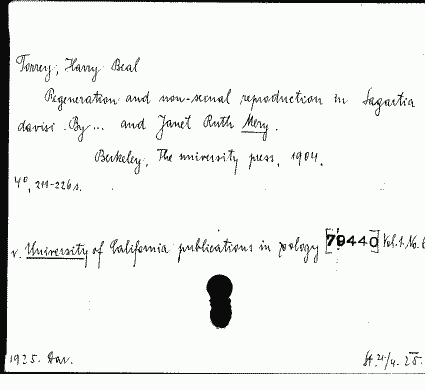 Torrey, Harry Beal
Regeneration and non-sexual reproduction in Sagartia
davisi. By ... and Janet Ruth Mery.
Berkeley, The university press, 1904.
4°, 211-226 s.
v. University of California publications in zoology [79440] Vol. 1. No. 6
1925. Dav. St. 21/4. 25.